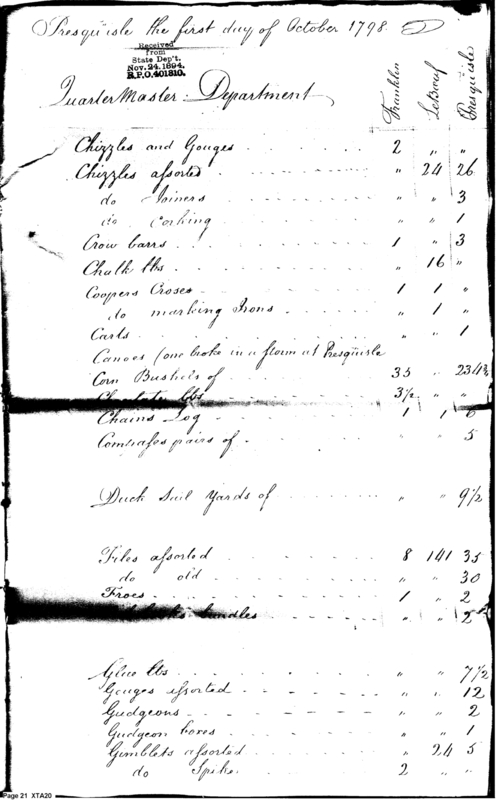 Presqu'isle the first day of October 1798.
Received
from
State Dep't.
Nov. 24. 1894.
R.P.O. 401810.
Quarter Master Department
Franklin Leboeuf Presquisle
Chizzles and Gouges 2 " "
Chizzles assorted " 24 26
do Joiners " " 3
do corking " " 1
Crow barrs 1 " 3
Chalk lbs " 16 "
Coopers Croses 1 1 "
do marking Irons " 1 "
Carts " " 1
Canoes (one broke in a storm at Presquisle
Corn Bushels of 35 " 234¾
lbs 3½ " "
Chains Log 1 1 6
Compasses pairs of 5
Duck Sail Yards of " " 9½
Files assorted 8 141 35
do old " " 30
Froes 1 " 2
bundles " " 2
Glue lbs " " 7½
Gouges assorted " " 12
Gudgeons " " 2
Gudgeon boxes " " 1
Gimblets assorted " 24 5
do Spike 2 " "
Page 21 XTA20